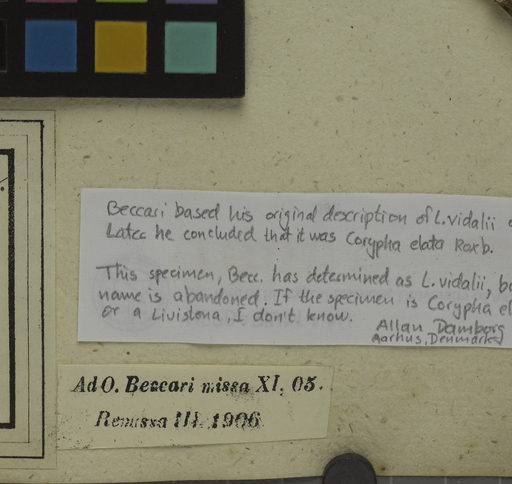 Beccari based his original description of L. vidalii
Later he concluded that it was Corypha elata Roxb.
This specimen, Becc. has determined as L. vidalii,
name is abandoned. If the specimen is Corypha el
or a Livistona, I don't know.
Allan Damborg
Aarhus, Denmark
Ad O. Beccari missa XI. 05.
Remissa III. 1906